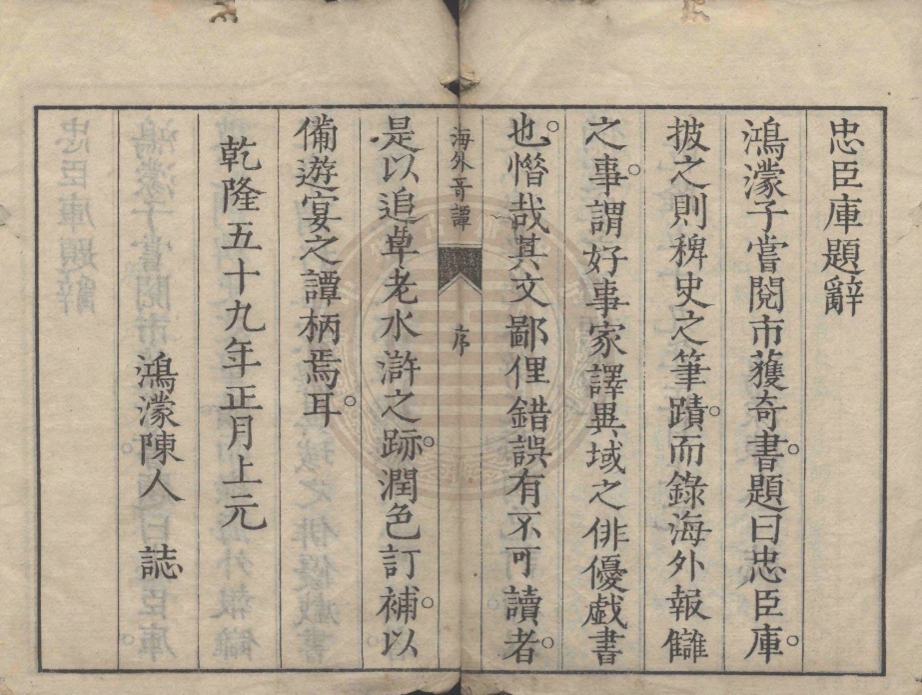 忠臣庫題辭
鴻濛子嘗閱市獲奇書。題曰忠臣庫。
披之則稗史之筆蹟。而錄海外報讎
之事。謂好事家譯異域之俳優戯書
也。惜哉其文鄙俚錯誤有不可讀者。
海外奇譚 序
是以追卓老水滸之跡。潤色訂補。以
備遊宴之譚柄焉耳。
乾隆五十九年正月上元
鴻濛陳人誌